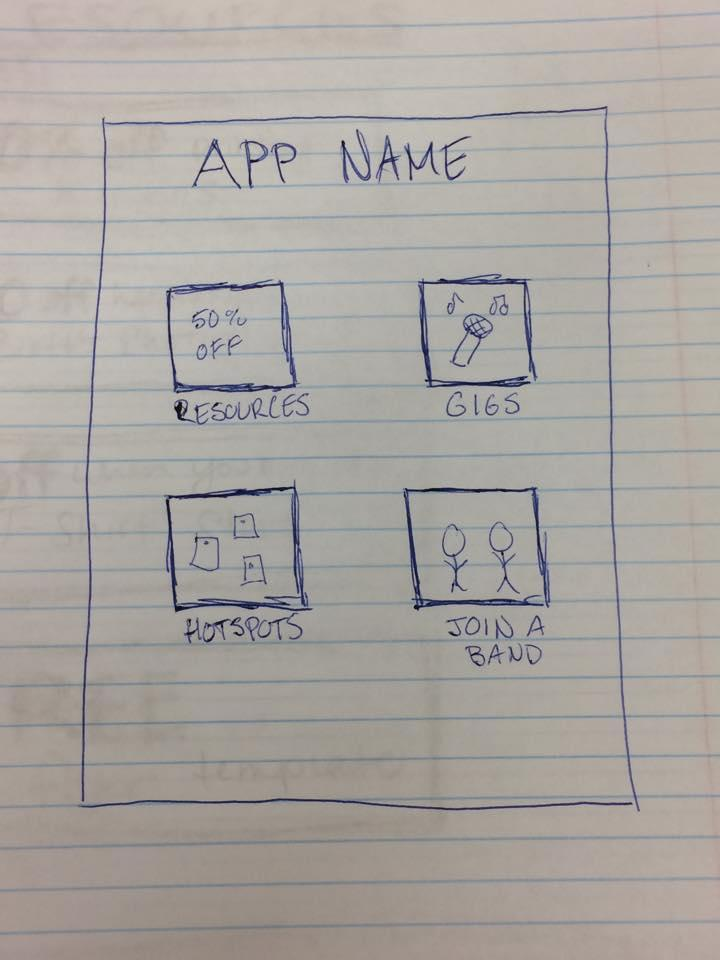 APP NAME
50%
OFF
RESOURCES
GIGS
HOTSPOTS
JOIN A
BAND
template